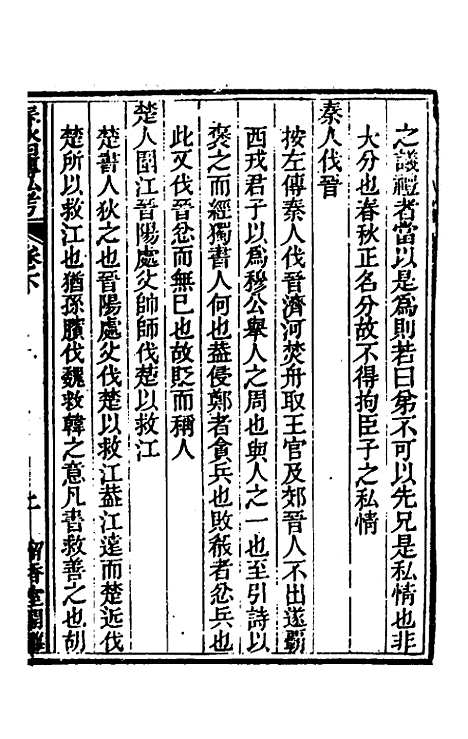 之議禮者當以是為則若曰弟不可以先兄是私情也非
大分也春秋正名分故不得拘臣子之私情
秦人伐晉
按左傳秦人伐晉濟河焚舟取王官及郊晉人不出遂霸
西戎君子以為穆公舉人之周也與人之一也至引詩以
褒之而經獨書人何也葢侵鄭者貪兵也敗殽者忿兵也
此又伐晉忿而無已也故貶而稱人
楚人圍江晉陽處父帥師伐楚以救江
楚書人狄之也晉陽處父伐楚以救江葢江遠而楚近伐
楚所以救江也猶孫臏伐魏救韓之意凡書救善之也胡
卷下